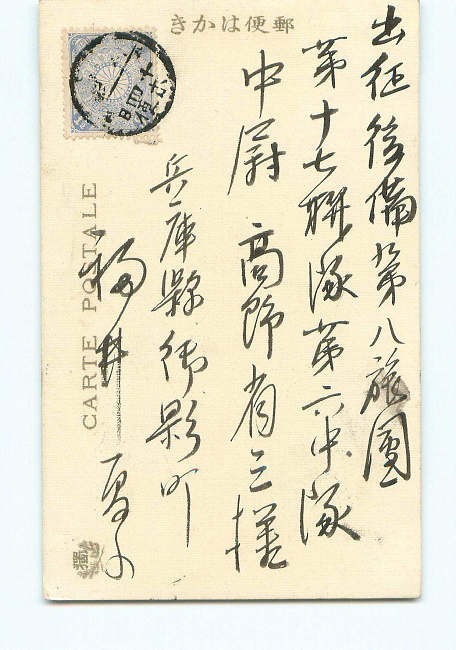 郵便はかき
出征後備第八旅團
第十七聯隊第六中隊
中尉 高野省三様
兵庫縣御影町
福井
CARTE POSTALE